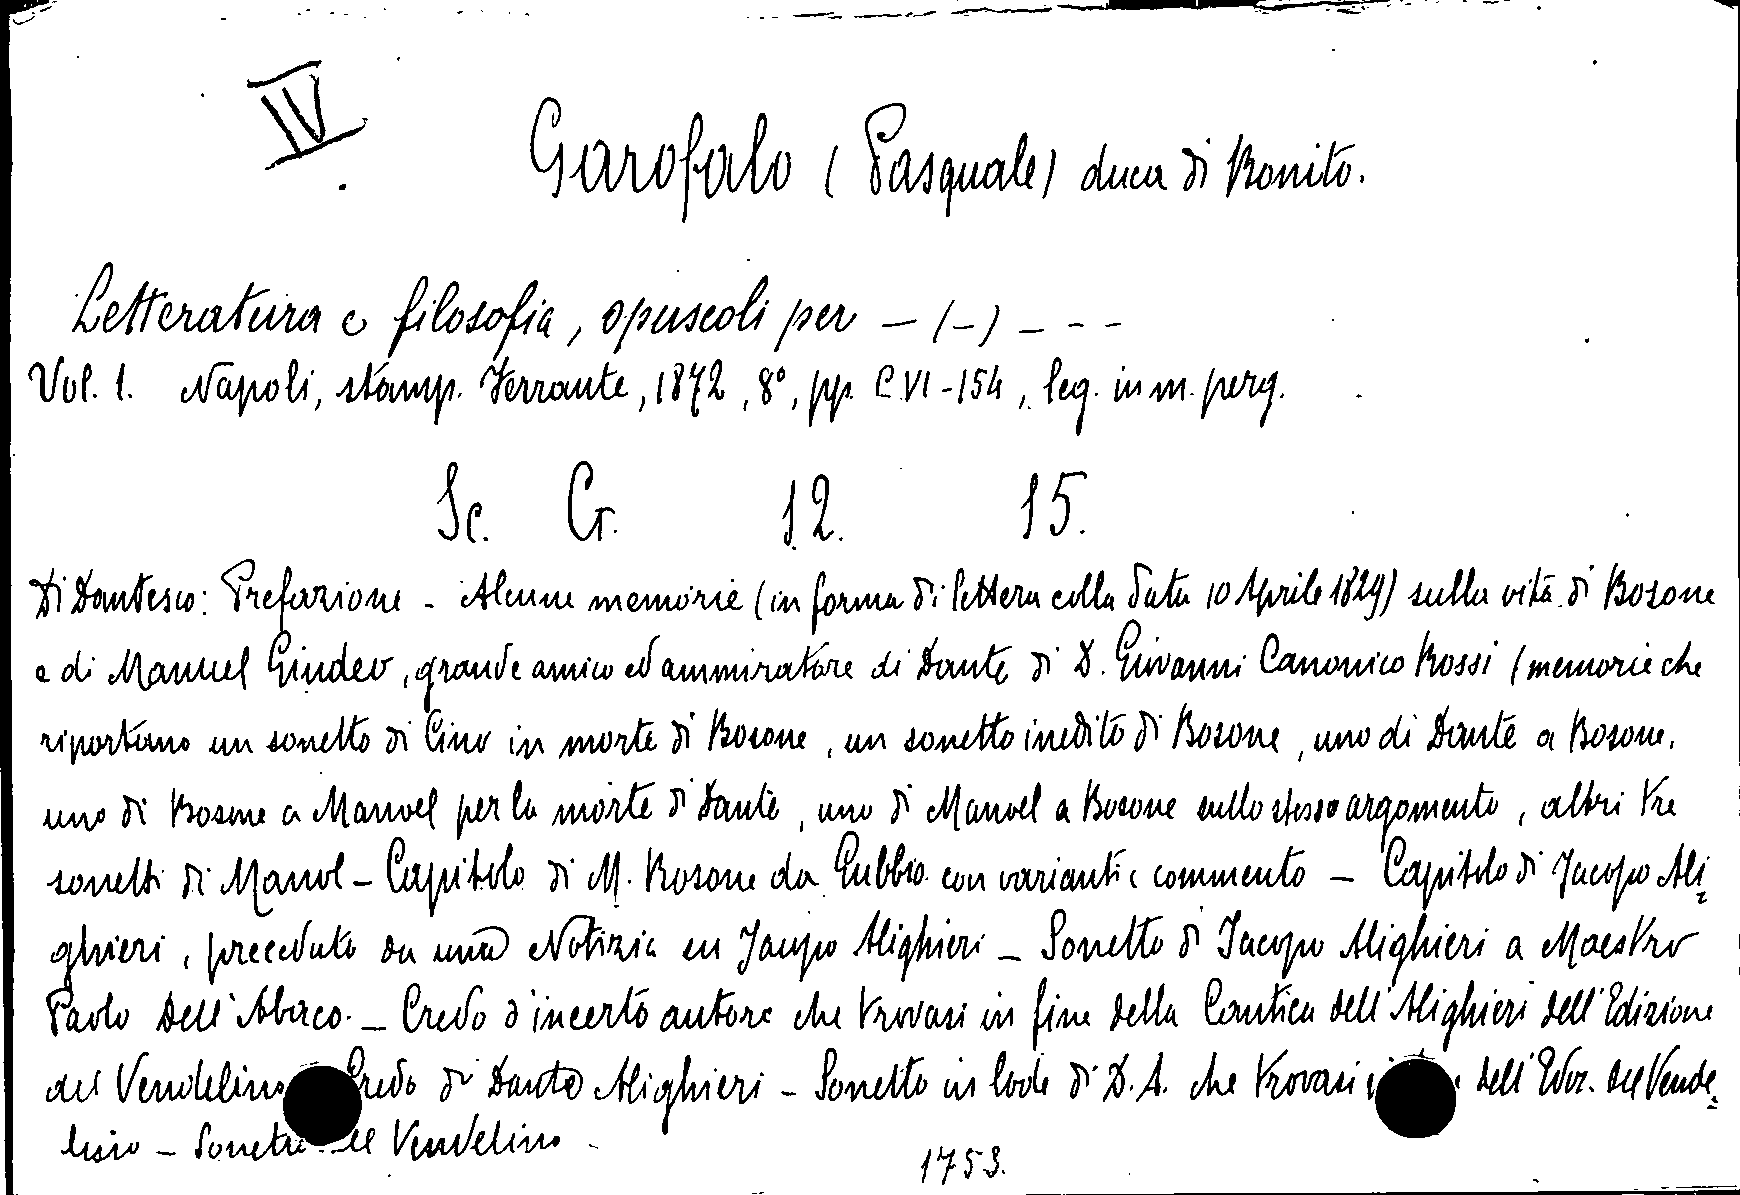 IV.
Garofalo (Pasquale) duca di Bonito.
Letteratura e filosofia, opuscoli per — (–) – - - -
Vol. 1. Napoli, stamp. Ferrante, 1872, 8°, pp. CVI-154, leg. in m. perg.
Sc. Gr. 12. 15.
Di Dantesco: Prefazione - Alcune memorie (in forma di lettera colla data 10 Aprile 1829) sulla vita di Bosone
e di Manuel Giudeo, grande amico ed ammiratore di Dante, di D. Giovanni Canonico Rossi (memorie che
riportano un sonetto di Cino in morte di Bosone, un sonetto inedito di Bosone, uno di Dante a Bosone,
uno di Bosone a Manoel per la morte di Dante, uno di Manoel a Bosone sullo stesso argomento, altri tre
sonetti di Manol - Capitolo di M. Bosone da Gubbio con varianti e commento — Capitolo di Jacopo Ali=
ghieri, preceduto da una Notizia su Jacopo Alighieri — Sonetto di Jacopo Alighieri a Maestro
Paolo Dell'Abaco. — Credo d'incerto autore che trovasi in fine della Cantica dell'Alighieri dell'Edizione
del Vendelino Credo di Dante Alighieri - Sonetto in lode di D. A. che trovasi dell'Ediz. del Vende=
lino - Sonetto del Vendelino -
1753.